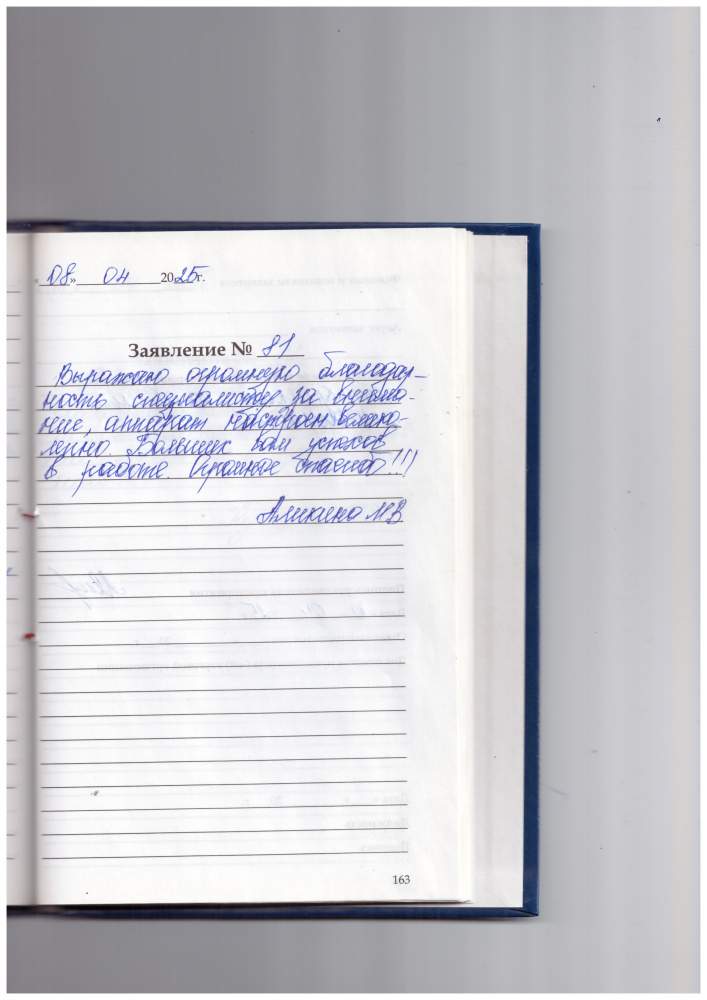 "08" 04 2025г.
Заявление № 81
Выражаю огромную благодар-
ность специалисту за внима-
ние, аппарат настроен велико-
лепно. Больших вам успехов
в работе. Огромное спасибо!!!
Аликина М В
163